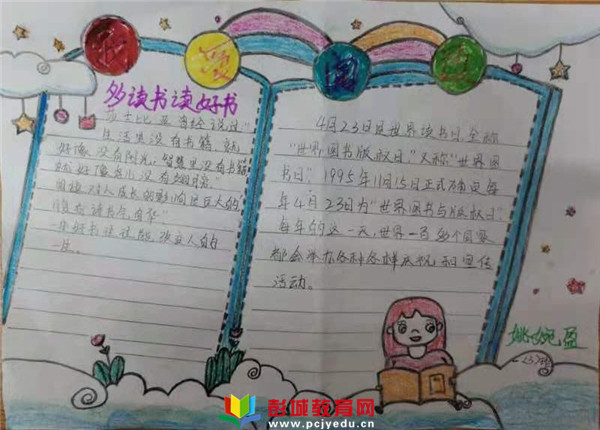 阅
多读书读好书
莎士比亚曾经说过"
生活里没有书籍，就
好像没有阳光；智慧里没有书籍
就好像鸟儿没有翅膀"
阅读对人成长的影响是巨大的
腹有诗书气自华
一本好书往往能改变人的
一生。
4月23日是世界读书日，全称
"世界图书版权日，"又称"世界图
书日"，1995年11月15日正式确定每
年4月23日为"世界图书与版权日"
每年的这一天，世界一百多个国家
都会举办各种各样庆祝和宣传
活动。
姚婉盈
彭城教育网
www.pcjyedu.cn